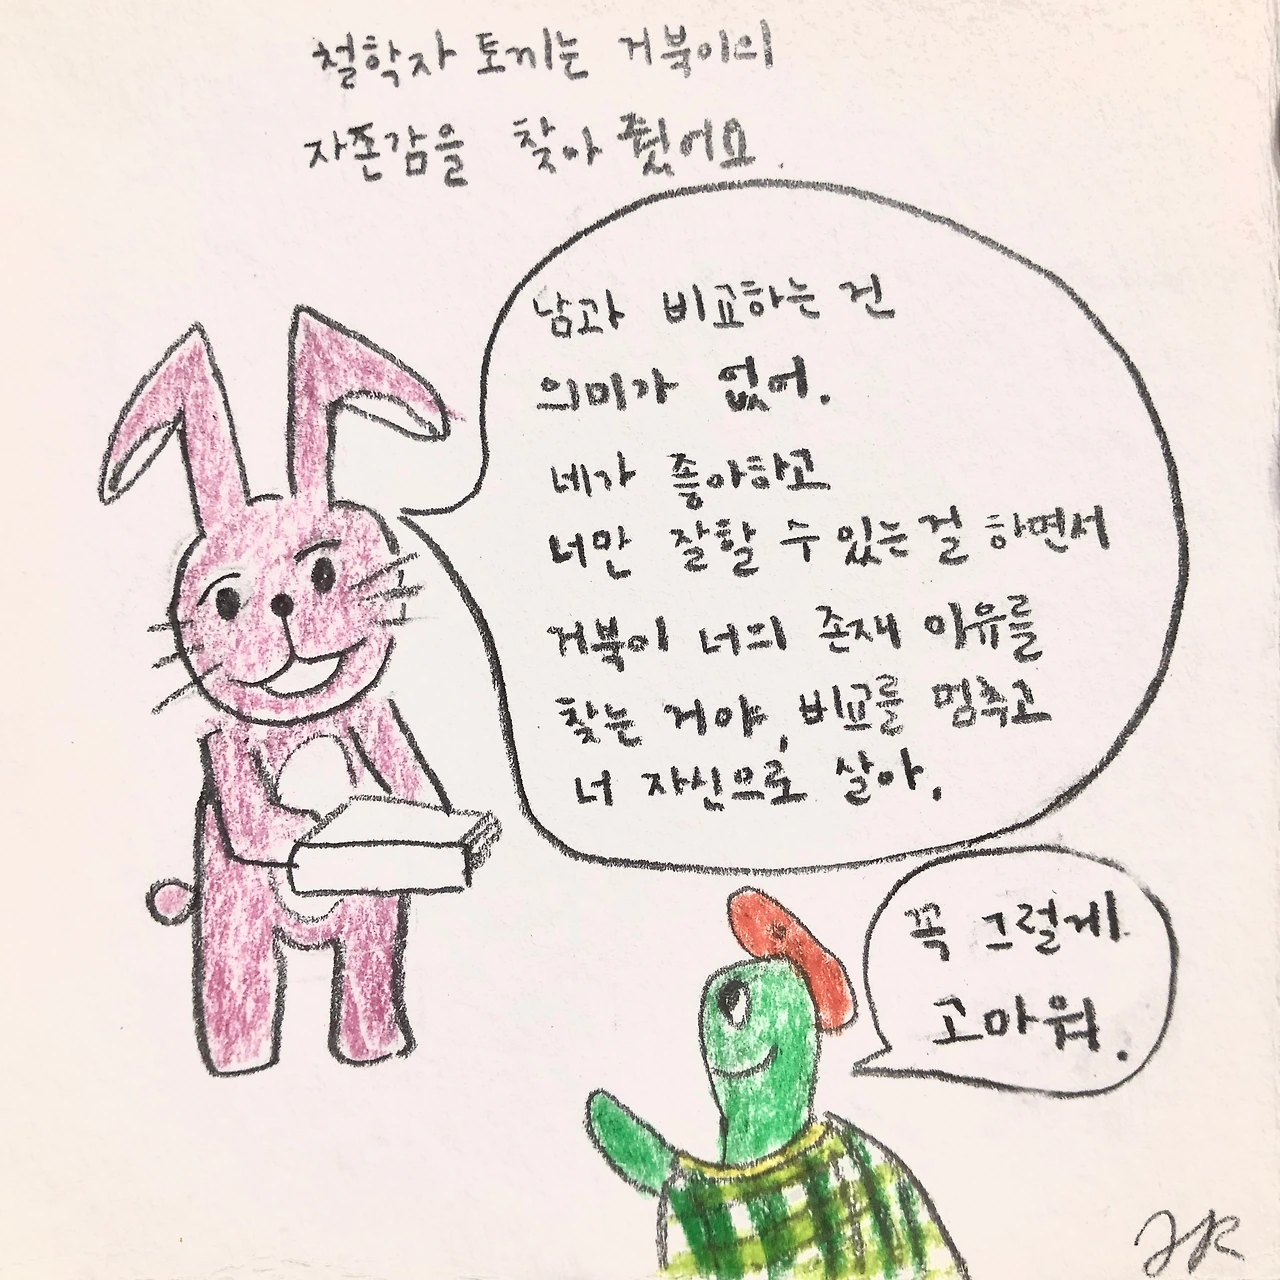 철학자 토끼는 거북이의
자존감을 찾아 줬어요.
남과 비교하는 건
의미가 없어.
네가 좋아하고
너만 잘할 수 있는 걸 하면서
거북이 너의 존재 이유를
찾는 거야, 비교를 멈추고
너 자신으로 살아.
꼭 그럴게
고마워.
JR